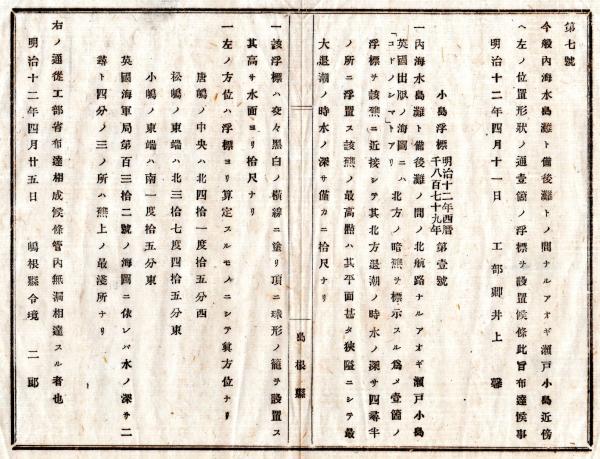 第七號
今般內海水島灘ト備後灘トノ間ナルアオギ瀨戸小島近傍
ヘ左ノ位置形狀ノ通壹箇ノ浮標ヲ設置候條此旨布達候事
明治十二年四月十一日　工部卿井上馨
小島浮標　明治十二年西曆千八百七十九年　第壹號
一內海水島灘ト備後灘ノ間ノ北航路ナルアオギ瀨戸小島
英國出版ノ海圖ニハ北方ノ暗礁ヲ標示スル爲メ壹箇ノ
「コドノシマ」トアリ
浮標ヲ該礁ニ近接シテ其北方退潮ノ時水ノ深サ四尋半
ノ所ニ浮置ス該礁ノ最高點ハ其平面甚タ狹隘ニシテ最
大退潮ノ時水ノ深サ僅カニ拾尺ナリ
島根縣
一該浮標ハ交々黑白ノ橫線ニ塗リ項ニ球形ノ籠ヲ設置ス
其高サ水面ヨリ拾尺ナリ
一左ノ方位ハ浮標ヨリ算定スルモノニシテ眞方位ナリ
唐嶋ノ中央ハ北四拾一度拾五分西
松嶋ノ東端ハ北三拾七度四拾五分東
小嶋ノ東端ハ南一度拾五分東
英國海軍局第百三拾二號ノ海圖ニ依レバ水ノ深サ二
尋ト四分ノ三ノ所ハ礁上ノ最淺所ナリ
右ノ通從工部省布達相成候條管內無漏相達スル者也
明治十二年四月廿五日　嶋根縣令境二郎